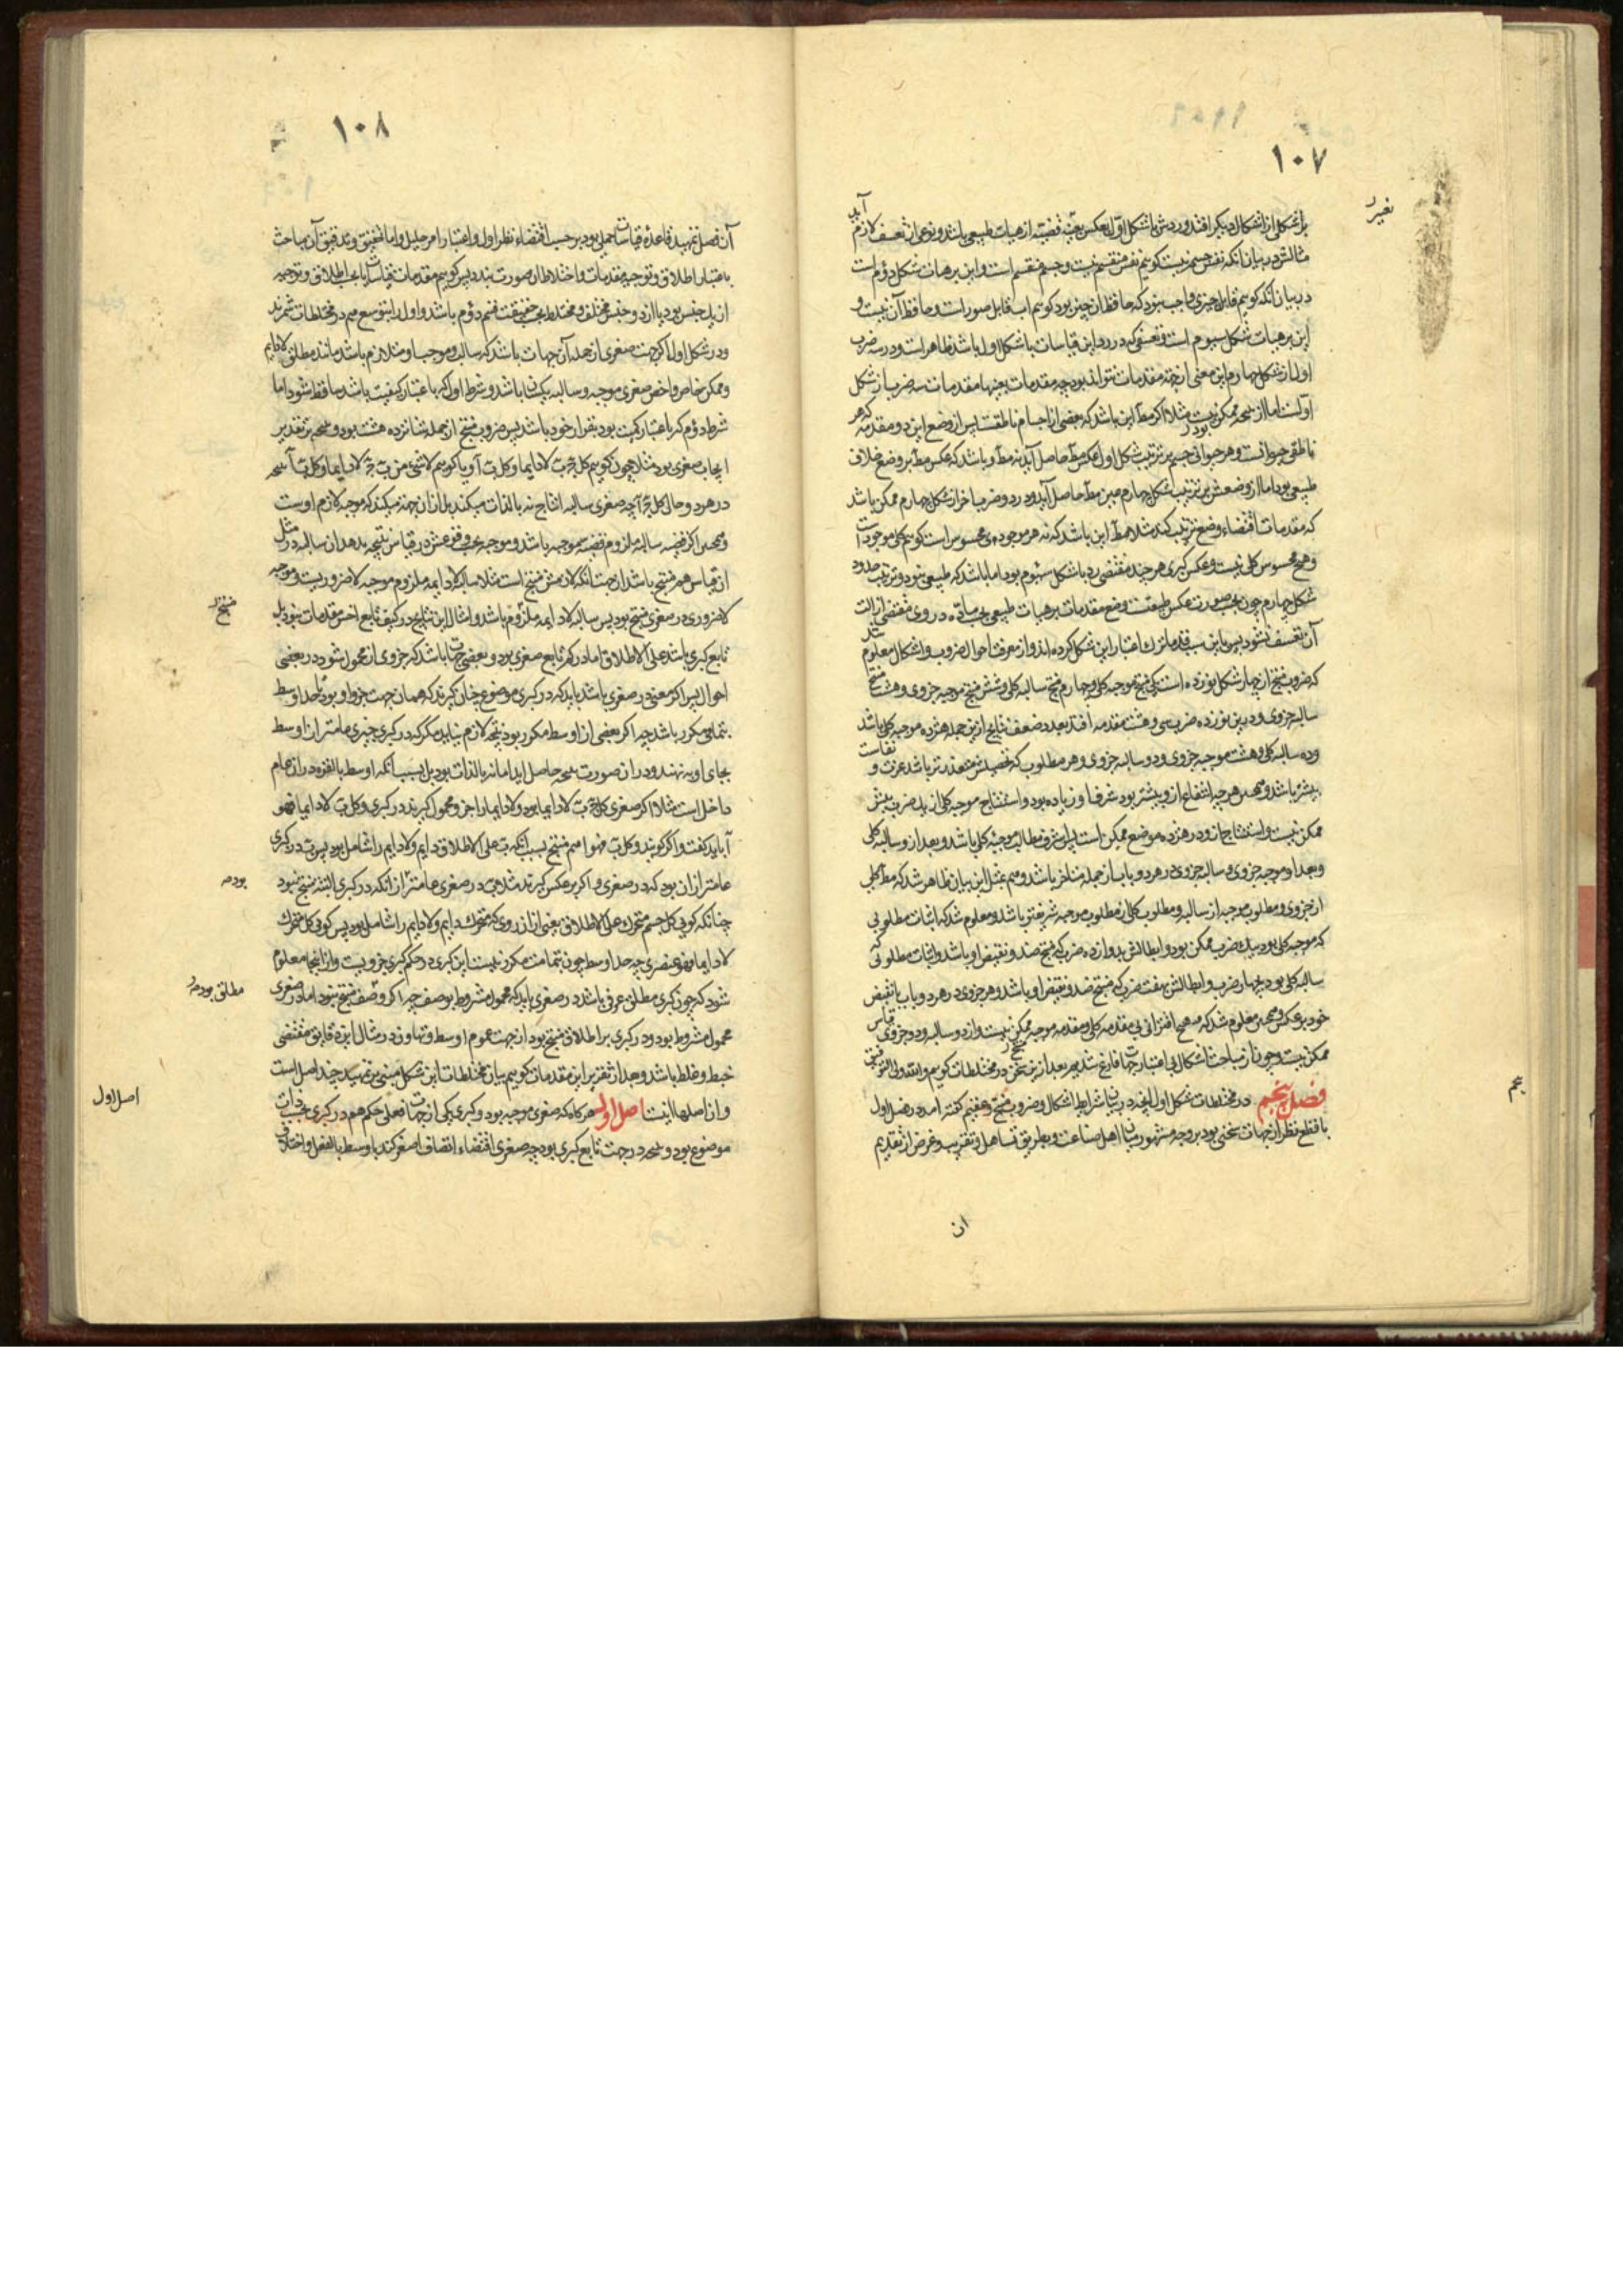 ١٠٧
بر شکلی از اشکال دیگر افتد و ردش با شکل اول بعکس بقیهٔ قضیه از هیات طبیعی باشد و نوعی از تعسف لازم آید
مثالش در بیان آنکه نفس جسم نیست گوییم نفس منقسم نیست و جسم منقسم است و این بر هیات شکل دوم است
در بیان آنکه گوییم قابل چیزی واجب نبود که حافظ آن چیز بود گوییم آب قابل صور است و حافظ آن نیست و
این بر هیات شکل سیوم است و تعسفی که در رد این قیاسات با شکل اول باشد ظاهر است و در سه ضرب
اول از شکل چهارم این معنی از جهة مقدمات نتواند بود چه مقدمات بعینها مقدمات سه ضرب از شکل
اولست اما از نتیجه ممکن نیست مثلا اگر مط این باشد که بعضی از اجسام ناطقست پس از وضع این دو مقدمه که هر
ناطقی حیوانست و هر حیوانی جسم بر ترتیب شکل اول عکس مط حاصل آید نه مط و باشد که عکس مط بر وضع خلاف
طبیعی بود اما از وضعش بر ترتیب شکل چهارم عین مط حاصل آید و در دو ضرب آخر از شکل چهارم ممکن باشد
که مقدمات اقتضاء وضع ترتیب کند مثلا مط این باشد که نه هر موجودی محسوس است گوییم کلی موجود است
و هیچ محسوس کلی نیست و عکس کبری هر چند مقتضی رد با شکل سیوم بود اما باشد که طبیعی نبود و ترتیب حدود
شکل چهارم چون بحسب صورت عکس طبیعت وضع مقدمات بر هیات طبیعی بحسب ماده در وی مقتضی ازالت
آن تعسف نشود پس باین سبب قدما ترک اعتبار این شکل کرده‌اند و از معرفت احوال ضروب و اشکال معلوم شد
که ضروب منتج از چهار شکل نوزده است یکی منتج موجبه کلی و چهارم منتج سالبه کلی و شش منتج موجبه جزوی و هشت منتج
سالبه جزوی و درین نوزده ضرب سی و هشت مقدمه افتد بعدد ضعف نتایج ازین جمله هژده موجبه کلی باشد
و ده سالبه کلی و هشت موجبه جزوی و دو سالبه جزوی و هر مطلوب که تحصیلش متعذرتر باشد عزت و نفاست
بیشتر باشد و همچنین هر چه انتفاع ازو بیشتر بود شرف او زیاده بود و استنتاج موجبه کلی از یک ضرب بیش
ممکن نیست و استنتاج ازو در هژده موضع ممکن است پس اشرف مطالب موجبهٔ کلی باشد و بعد ازو سالبه کلی
و بعد او موجبه جزوی و سالبه جزوی در هر دو باب از جمله متاخر باشد و هم بمثل این بیان ظاهر شد که مط کلی
از جزوی و مطلوب موجبه از سالبه و مطلوب کلی از مطلوب موجبه شریفتر باشد و معلوم شد که اثبات مطلوبی
که موجبه کلی بود بیک ضرب ممکن بود و ابطالش بدوازده ضرب که منتج ضد و نقیض او باشد و اثبات مطلوبی که
سالبه کلی بود بچهار ضرب و ابطالش بهفت ضرب که منتج ضد و نقیض او باشد و هر جزوی در هر دو باب با نقیض
خود بر عکس و همچنین معلوم شد که هیچ اقترانی بی مقدمه کلی و مقدمه موجبه ممکن نیست و از دو سالبه و دو جزوی قیاس
ممکن نیست و چون از مباحث اشکال بی اعتبار جهات فارغ شدیم بعد ازین سخن در مختلطات گوییم والله ولی التوفیق
فصل پنجم در مختلطات شکل اول آنچه در بیان شرایط اشکال و ضروب منتج و عقیم گفته آمد در فصل اول
با قطع نظر از جهات سخنی بود بر وجه مشهور میان اهل صناعت و بطریق تساهل و تقریب و غرض از تقدیم
ان
١٠٨
آن فصل تمهید قاعدهٔ قیاسات حملی بود بر حسب اقتضاء نظر اول و اعتبار امر جلیل و اما تحقیق و تدقیق آن مباحث
باعتبار اطلاق و توجیه مقدمات و اختلاط آن صورت بندد پس گوییم مقدمات قیاسات یا بحسب اطلاق و توجیه
از یک جنس بود یا از دو جنس مختلف و مختلط بحسب حقیقت قسم دوم باشد و اول را بتوسع هم در مختلطات شمرند
و در شکل اول اگر جهت صغری از جمله آن جهات باشد که سالب و موجب او متلازم باشد مانند مطلق لادایم
و ممکن خاص و اخص صغری موجبه و سالبه یکسان باشد و شرط اول که باعتبار کیفیت باشد ساقط شود اما
شرط دوم که باعتبار کمیت بود بقرار خود باشد پس ضروب منتج از جمله شانزده هشت بود و نتیجه بر تقدیر
ایجاب صغری بود مثلا چون گوییم کل ج ب لادایما و کل ب آ و یا گوییم لاشیء من ج ب لادایما و کل ب آ نتیجه
در هر دو حال کل ج آ چه صغری سالبه انتاج نه بالذات میکند بل از آن جهة میکند که موجبه لازم اوست
و همچنین اگر قضیه سالبه ملزوم قضیه موجبه باشد و موجبه بحسب وقوعش در قیاس نتیجه بدهد آن سالبه در مثل
آن قیاس هم منتج باشد از جهت آنکه لازمش منتج است مثلا سالبه لادایمه ملزوم موجبه لاضروریست و موجبه
لاضروری در صغری منتج بود پس سالبه لادایمه ملزوم باشد و امثال این نتایج در کیف تابع اخس مقدمات نبود بل
تابع کبری باشد علی الاطلاق اما در کم تابع صغری بود و بعضی جهات باشد که جزوی از محمول شود در بعضی
احوال پس اگر معنی در صغری باشد باید که در کبری موضوع چنان گیرند که همان جهت جزو او بود تا حد اوسط
بتمامی مکرر باشد چه اگر بعضی از اوسط مکرر بود نتیجه لازم نیاید مگر که در کبری چیزی عامتر از اوسط
بجای او بنهند و در آن صورت نتیجه حاصل آید اما نه بالذات بود بل بسبب آنکه اوسط بالقوه در آن عام
داخل است مثلا اگر صغری کل ج ب لادایما بود و لادایما را جزو محمول گیرند در کبری و کل ب لادایما فهو
آ باید گفت و اگر گویند و کل ب فهو آ هم منتج بسبب آنکه ب علی الاطلاق دایم و لادایم را شامل بود پس ب در کبری
عامتر از آن بود که در صغری و اگر بر عکس گیرند مثلا ب در صغری عامتر از آنکه در کبری البته منتج نبود
چنانکه گویی کل جسم متحرک علی الاطلاق یعنی از آن روی که متحرک دایم و لادایم را شامل بود پس گویی کل متحرک
لادایما فهو عنصری چه حد اوسط چون بتمامت مکرر نیست این کبری در حکم کبری جزویست و از اینجا معلوم
شود که چون کبری مطلق عرفی باشد در صغری باید که محمول مشروط بوصف چه اگر وصف منتج نبود اما در صغری
محمول مشروط بود و در کبری بر اطلاق منتج بود از جهت عموم اوسط و تهاون در مثال این دقایق مقتضی
خبط و غلط باشد و بعد از تقریر این مقدمات گوییم بیان مختلطات این شکل مبنی بر تمهید چند اصل است
و از آن اصلها اینست اصل اول هر گاه که صغری موجبه بود و کبری یکی از جهات فعلی حکم هم در کبری بحسب ذات
موضوع بود و نتیجه در جهت تابع کبری بود چه صغری اقتضاء اتصاف اصغر کند باوسط بالفعل و اختلاف
مطلق بود
اصل اول